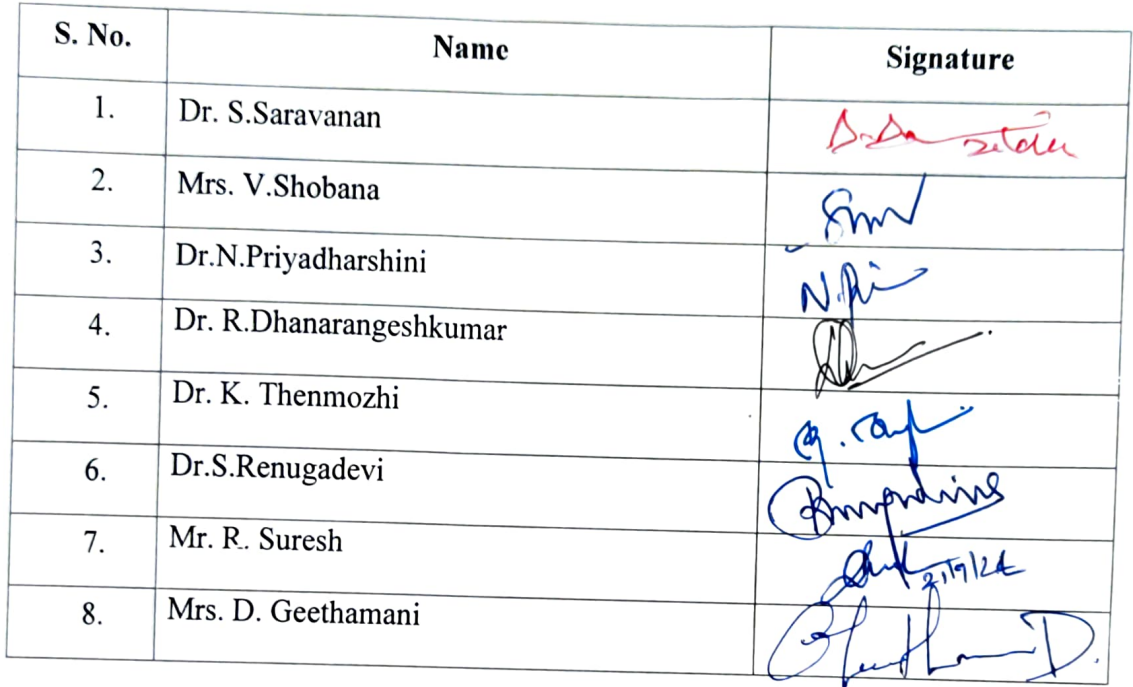 S. No. Name Signature
1. Dr. S.Saravanan
2. Mrs. V.Shobana
3. Dr.N.Priyadharshini N.Pri
4. Dr. R.Dhanarangeshkumar
5. Dr. K. Thenmozhi
6. Dr.S.Renugadevi
7. Mr. R. Suresh 21/9/24
8. Mrs. D. Geethamani